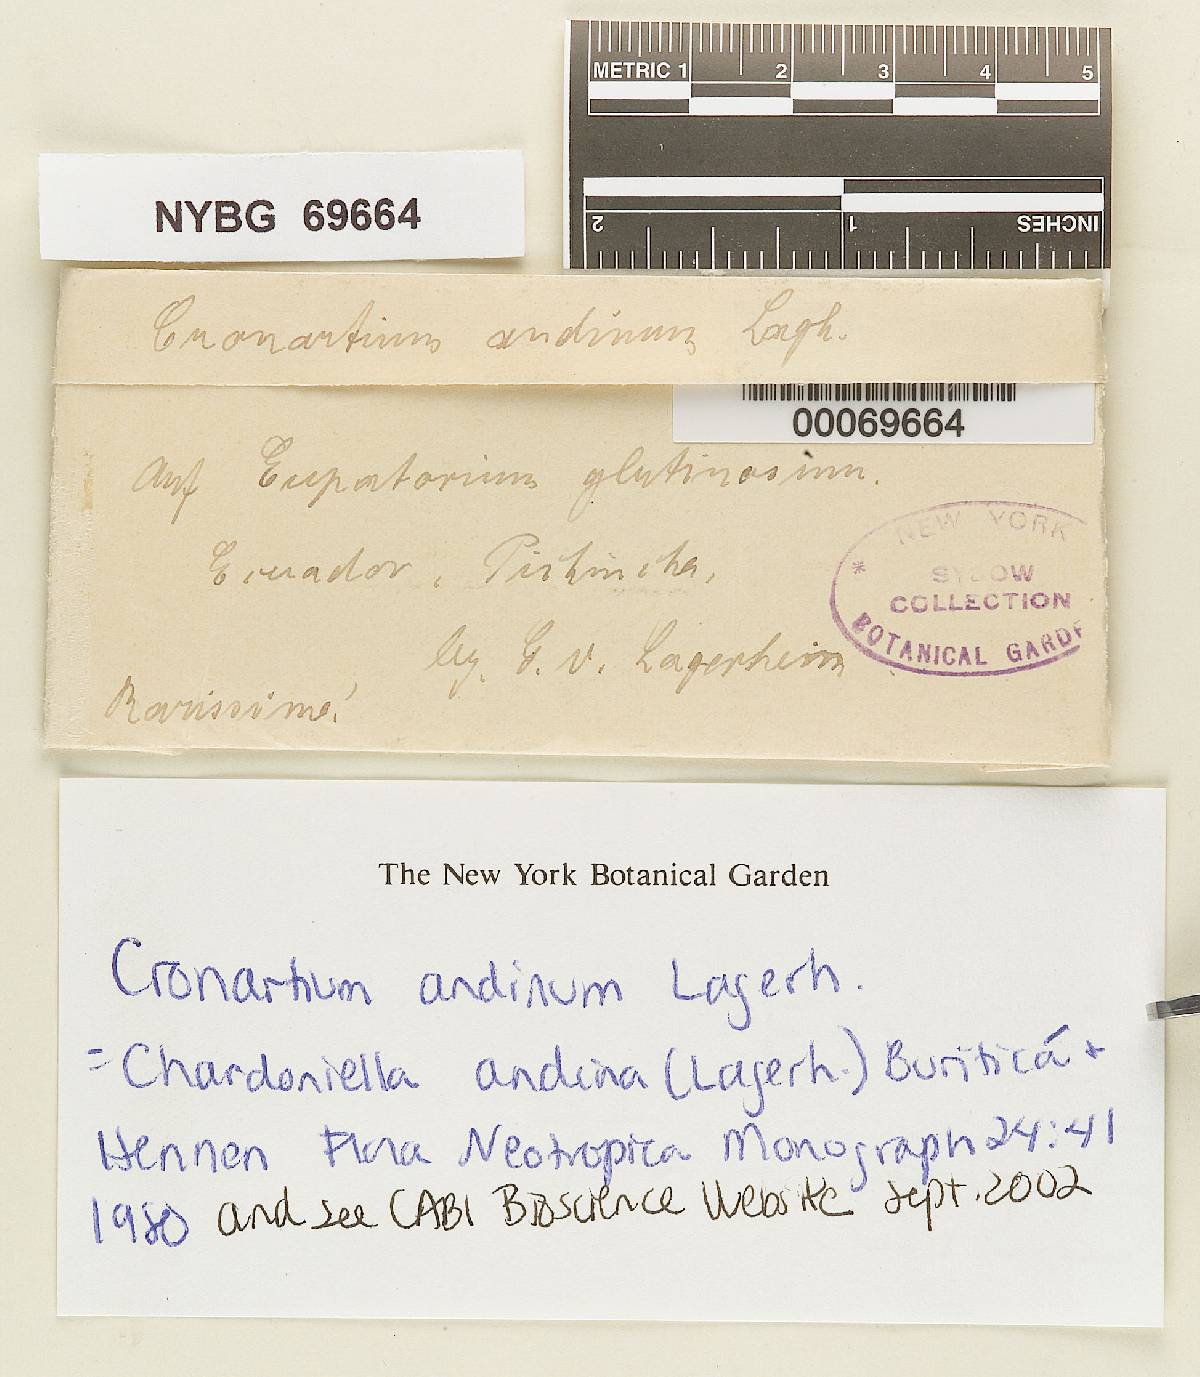 METRIC 1 2 3 4 5
2 1 INCHES
NYBG 69664
Cronartium andinum Lagh.
00069664
auf Eupatorium glutinosum.
Ecuador, Pichincha,
leg. G. v. Lagerheim
Rarissime!
* NEW YORK
SYDOW
COLLECTION
BOTANICAL GARDE
The New York Botanical Garden
Cronartium andinum Lagerh.
= Chardoniella andina (Lagerh.) Buriticá +
Hennen Flora Neotropica Monograph 24:41
1980 and see CABI Bioscience Website Sept. 2002